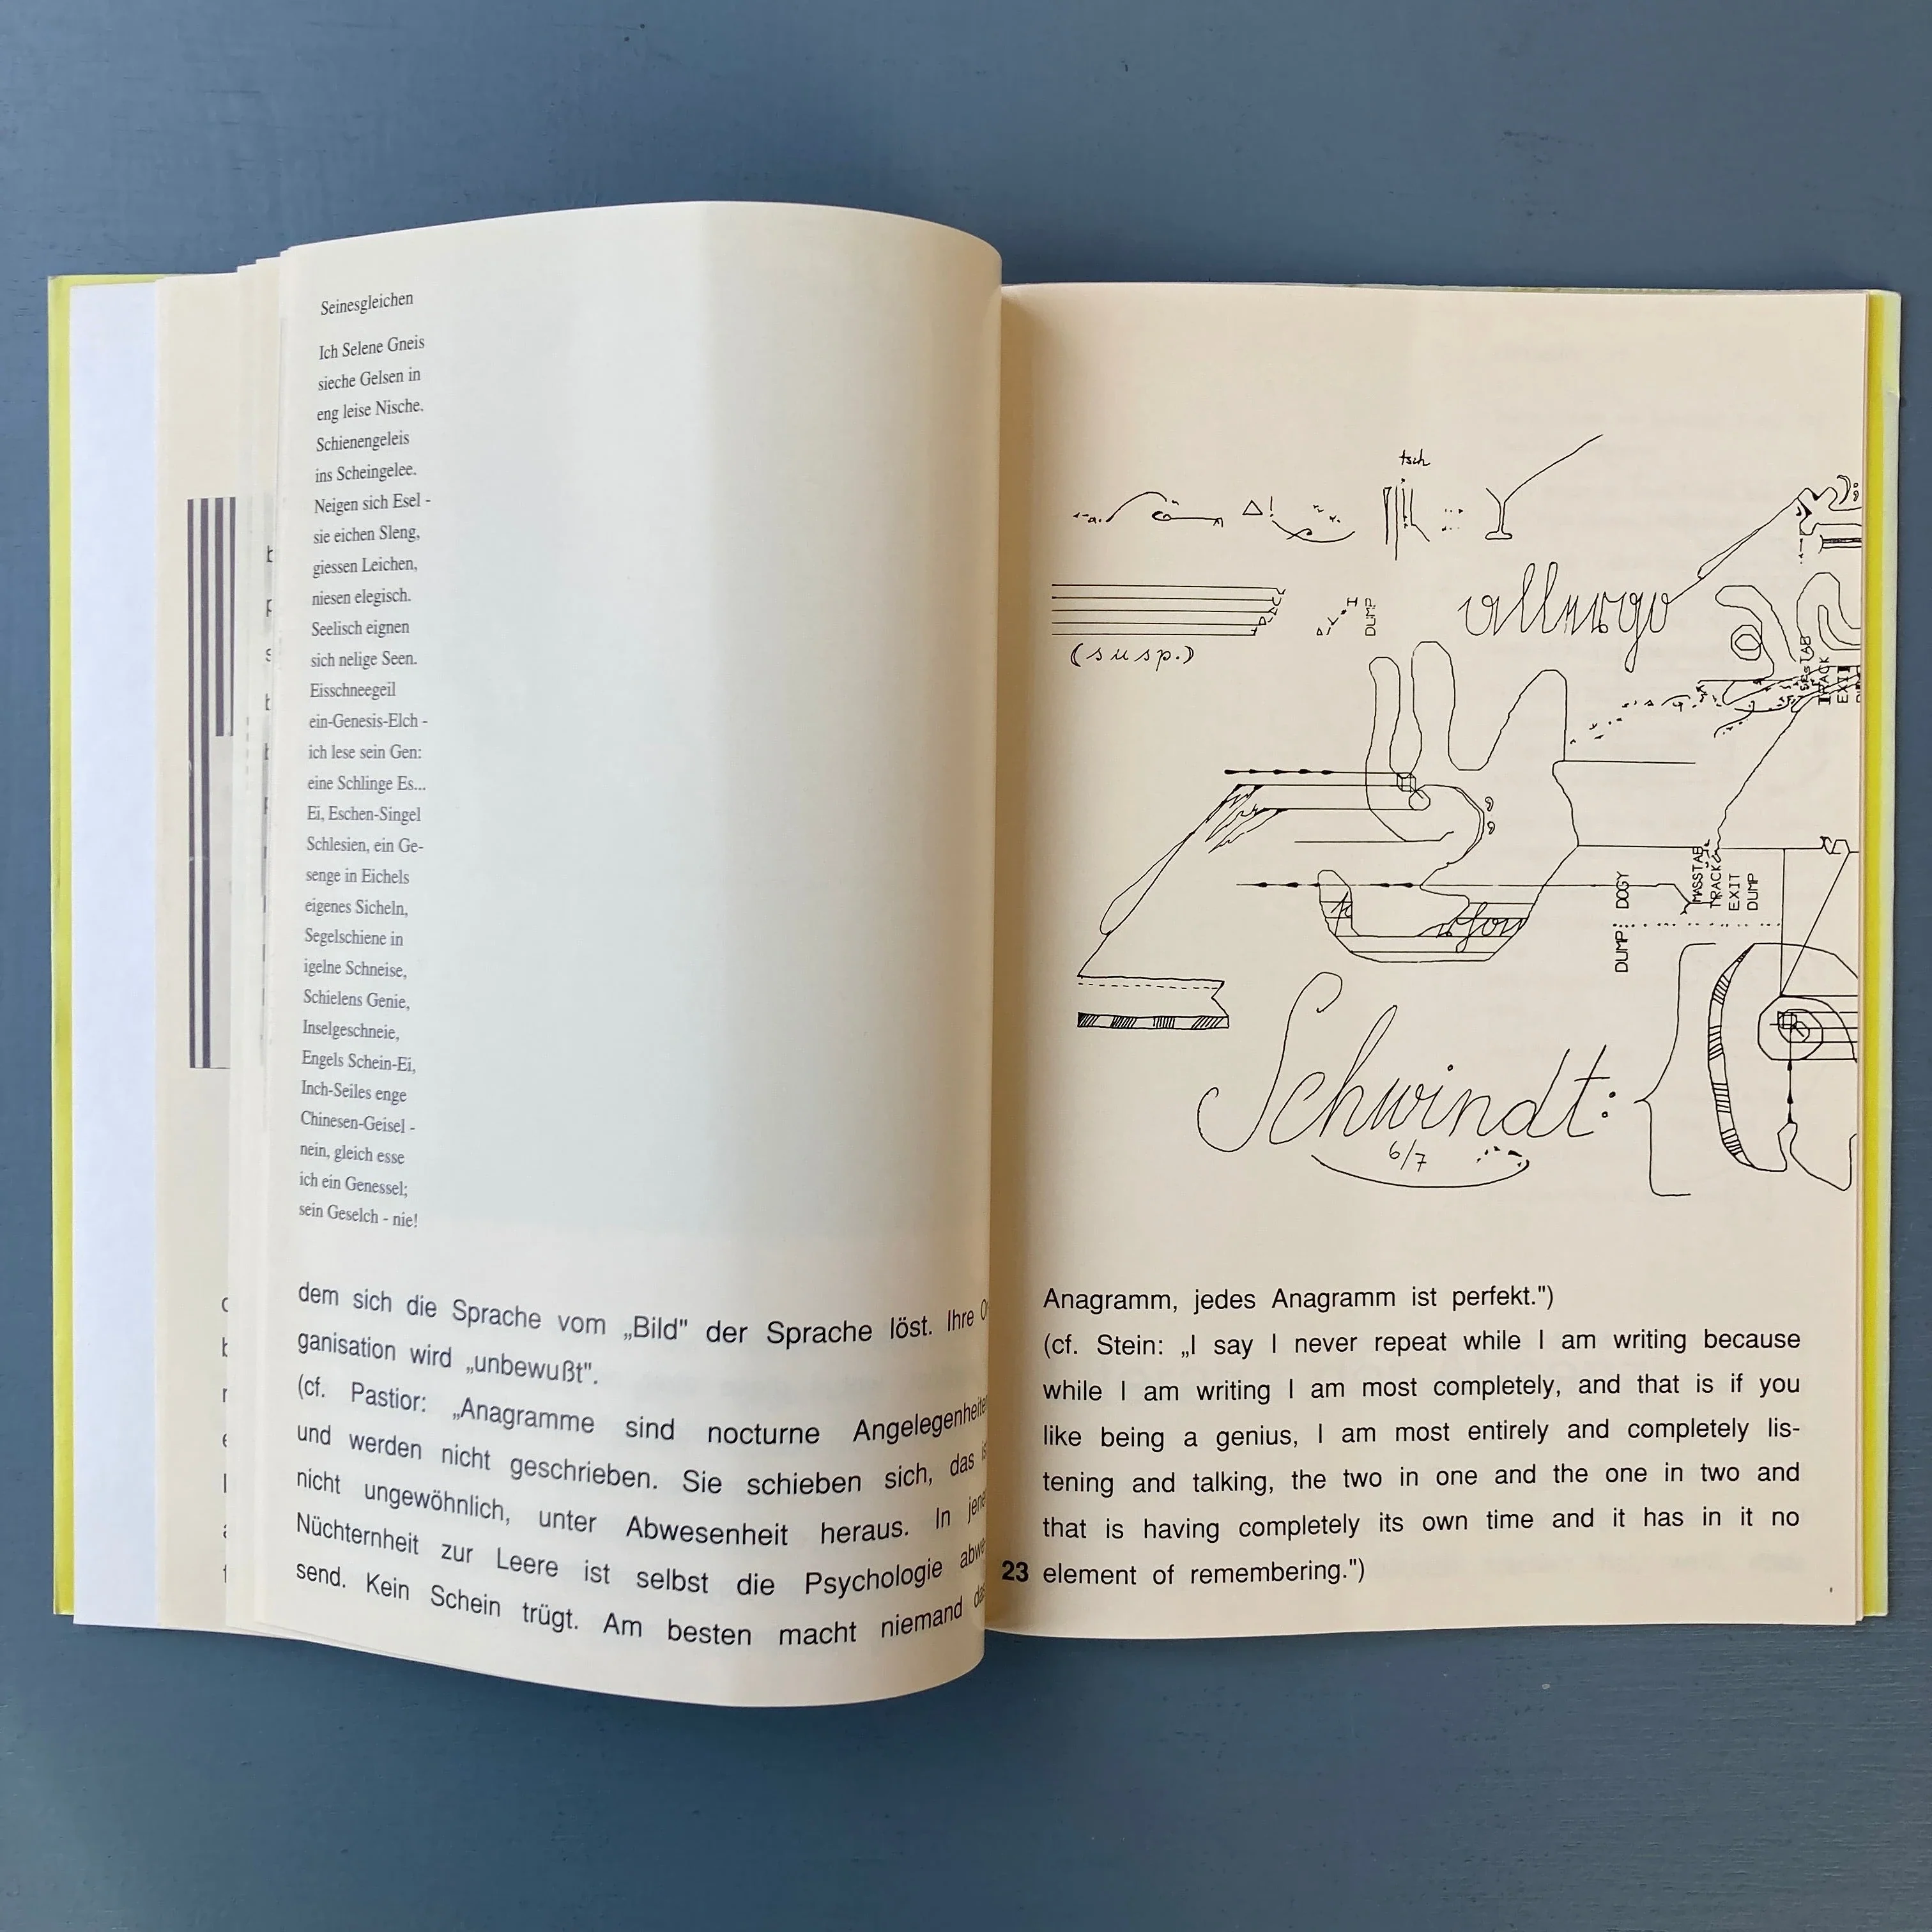 Seinesgleichen
Ich Selene Gneis
sieche Gelsen in
eng leise Nische.
Schienengeleis
ins Scheingelee.
Neigen sich Esel -
sie eichen Sleng,
giessen Leichen,
niesen elegisch.
Seelisch eignen
sich nelige Seen.
Eisschneegeil
ein-Genesis-Elch -
ich lese sein Gen:
eine Schlinge Es...
Ei, Eschen-Singel
Schlesien, ein Ge-
senge in Eichels
eigenes Sicheln,
Segelschiene in
igelne Schneise,
Schielens Genie,
Inselgeschneie,
Engels Schein-Ei,
Inch-Seiles enge
Chinesen-Geisel -
nein, gleich esse
ich ein Genessel;
sein Geselch - nie!
dem sich die Sprache vom „Bild" der Sprache löst. Ihre
ganisation wird „unbewußt".
(cf. Pastior: „Anagramme sind nocturne Angelegenheiten
und werden nicht geschrieben. Sie schieben sich, das
nicht ungewöhnlich, unter Abwesenheit heraus. In
Nüchternheit zur Leere ist selbst die Psychologie
send. Kein Schein trügt. Am besten macht niemand
tsch
Δ!
DUMP
(susp.)
SESTAB
TRACK
EXIT
DOGY
MASSTAB
TRACK
EXIT
DUMP
DUMP:
Schwindt:
6/7
Anagramm, jedes Anagramm ist perfekt.")
(cf. Stein: „I say I never repeat while I am writing because
while I am writing I am most completely, and that is if you
like being a genius, I am most entirely and completely lis-
tening and talking, the two in one and the one in two and
that is having completely its own time and it has in it no
23 element of remembering.")